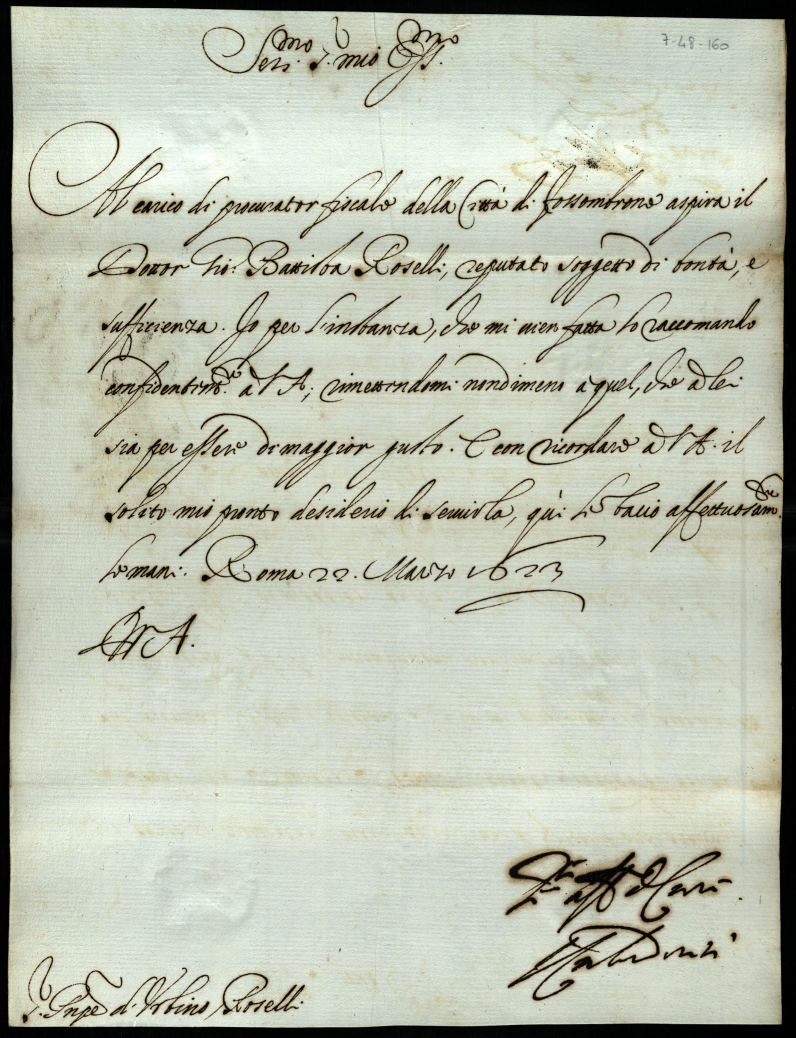 7-48-160
Ser.mo S.r mio Oss.mo
Al carico di procurator fiscale della Città di Fossombrone aspira il
Dottor Gio: Battista Roselli, reputato soggetto di bontà, e
sufficienza. Io per l'instanza, che mi vien fatta lo raccomando
confidentem.te à V A; rimettendomi nondimeno a quel, che à lei
sia per essere di maggior gusto. E con ricordare à V A. il
solito mio pronto desiderio di servirla, quì le bacio affettuosam.te
le mani. Roma 22. Marzo 1623
D V A.
S.r Pnpe d'Urbino, Roselli